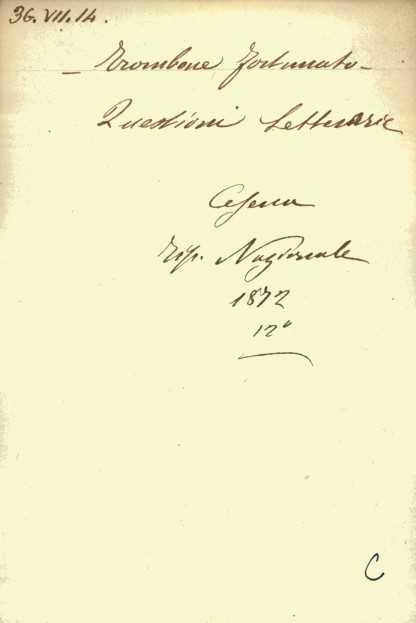 36.VII.14.
- Trombone Fortunato -
Questioni Letterarie
Cesena
Tip. Nazionale
1872
12°
C